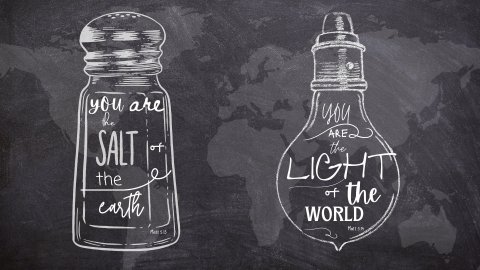 you are
the
SALT of
the
earth
Matt 5:13
YOU
ARE
the
LIGHT
of the
WORLD
Matt 5:14